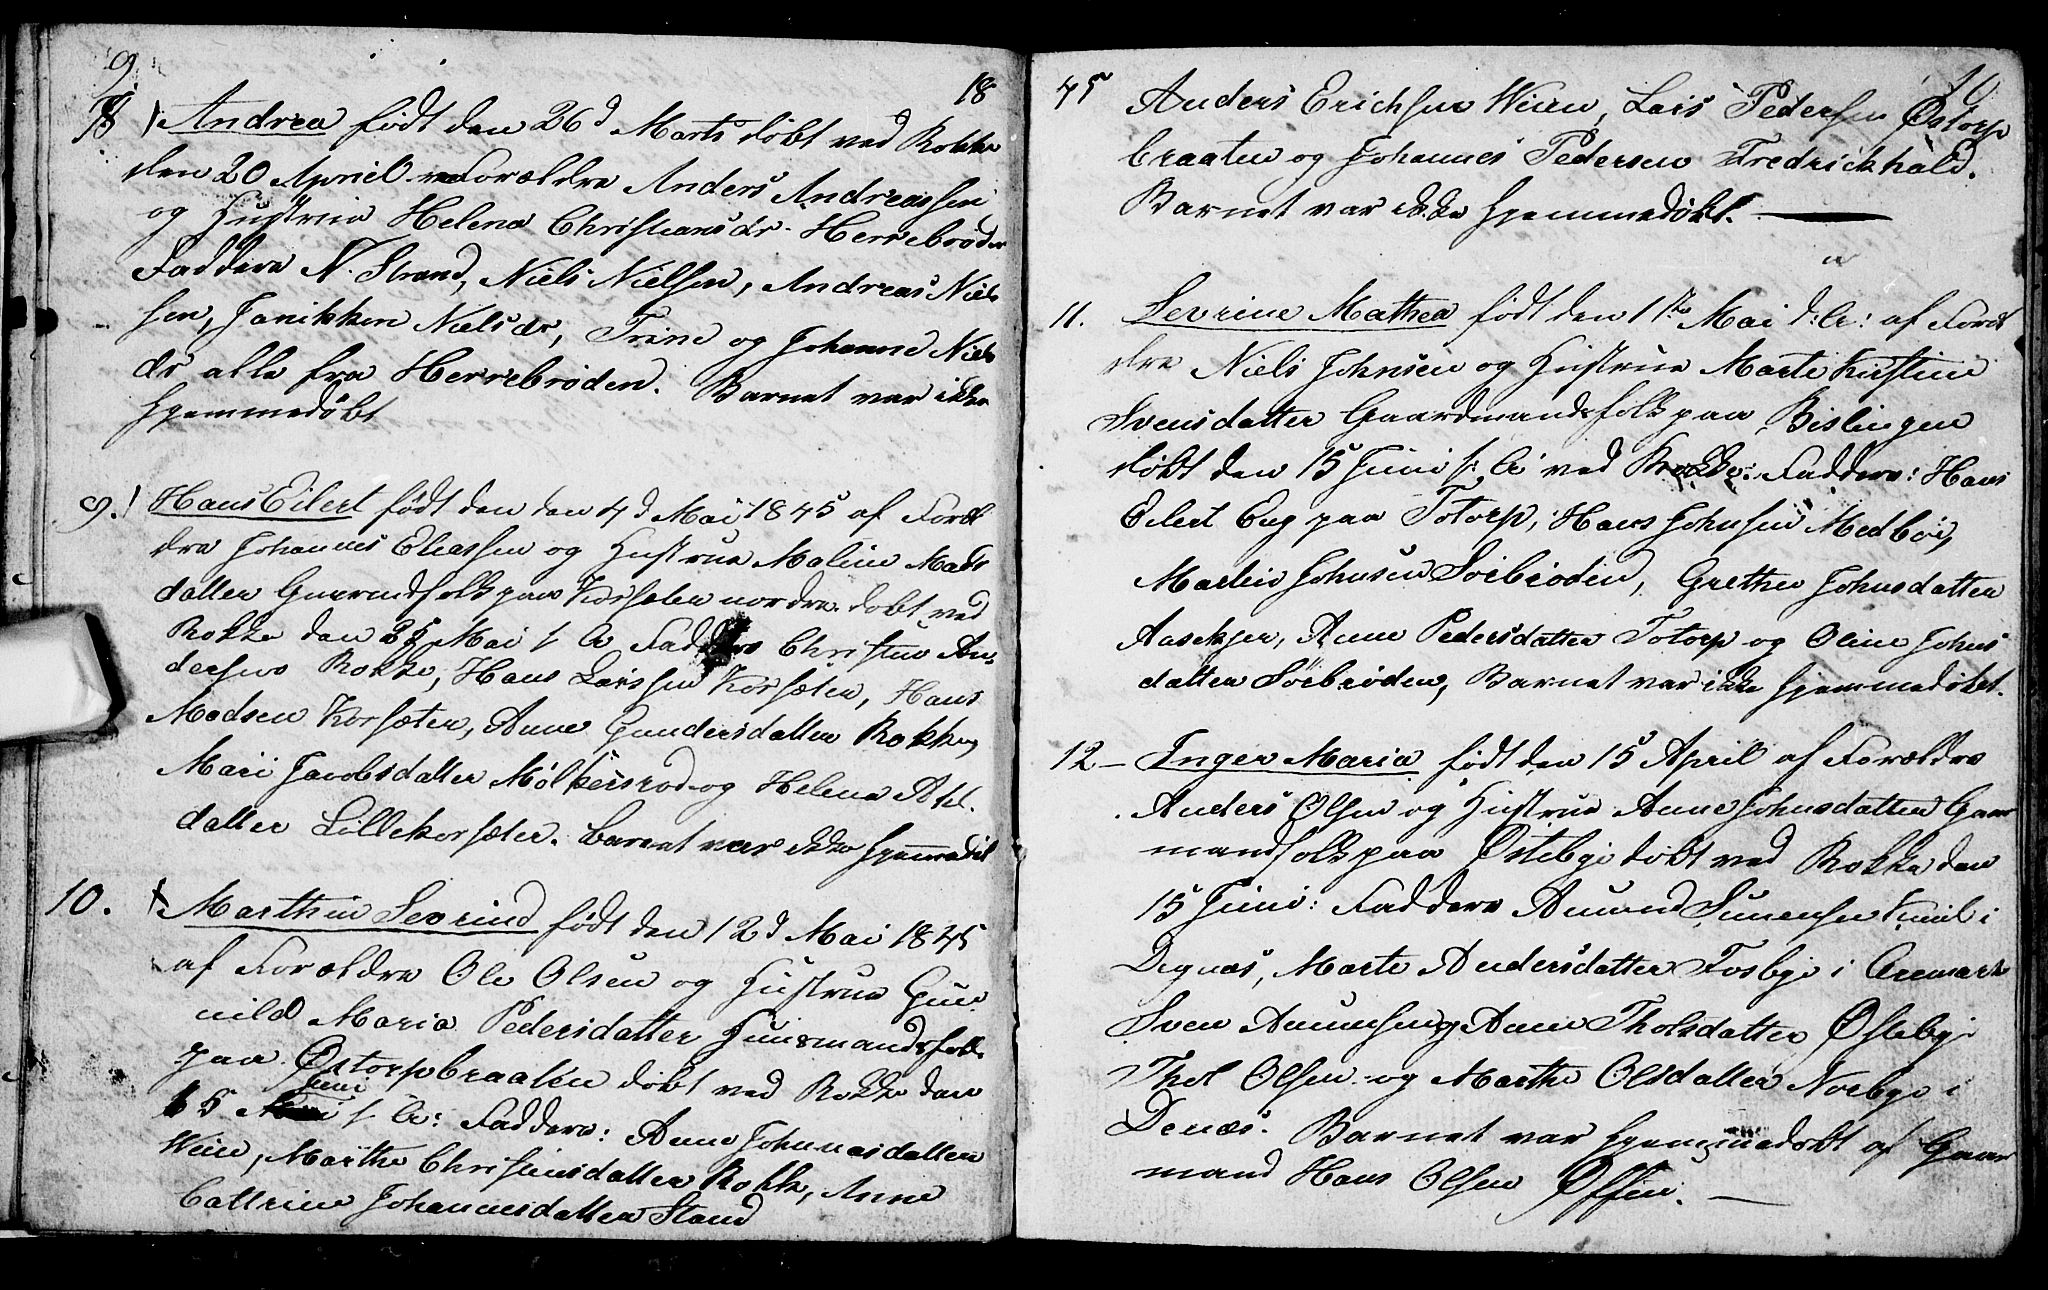 9
18
8 Andrea født den 26d Marts døbt ved Rokke
den 20 April Forældre Anders Andreassen
og Hustrue Helene Christiansdr. Herrebrøden
Faddere N. Strand, Niels Nielsen, Andreas Niel
sen, Janikken Nielsdr, Trine og Johanne Niels
dr alle fra Herrebrøden. Barnet var ikke
hjemmedøbt
9. Hans Eilert født den den 4d Mai 1845 af Foræl
dre Johannes Eliassen og Hustrue Maline Mads
datter Gaardfolk paa Korsæter nordre døbt ved
Rokke den 25 Mai s. A Faddere Christen An
dersen Rokke, Hans Larssen Korsæter, Hans
Madsen Korsæter, Anne Gundersdatter Rokke,
Mari Jacobsdatter Mølkersrød og Helene Axel
datter Lillekorsæter. Barnet var ikke hjemmedøbt
10. Marthin Sevrind født den 12d Mai 1845
af Forældre Ole Olsen og Hustrue Gun
nild Maria Pedersdatter Huusmandsfolk
paa Østorpbraaten døbt ved Rokke den
15 Juni s. A: Faddere: Anne Johannesdatter
Weien, Marthe Christensdatter Rokke, Anne
Cattrine Johannesdatter Stand
45
Anders Erichsen Weien, Lars Pedersen Østorp
braaten og Johannes Pedersen Fredrickhald.
Barnet var ikke hjemmedøbt.
11. Sevrine Mathea født den 1ste Mai d: A: af Foræl
dre Niels Johnsen og Hustrue Marte Kirstine
Svensdatter Gaardmandsfolk paa Bislingen
døbt den 15 Juni s: A: ved Rokke: Faddere: Hans
Eilert Eng paa Totorp, Hans Johnsen Medbøe,
Martin Johnsen Sørbrøden, Grethe Johnsdatter
Aasekjer, Anne Pedersdatter Totorp og Oline Johns
datter Sörbröden, Barnet var ikke hjemmedøbt.
12 - Inger Maria født den 15 April af Forældre
Anders Olsen og Hustrue Anne Johnsdatter Gaar
mandfolk paa Østebye døbt ved Rokke den
15 Juni: Faddere Amund Simensen i
Degnæs, Marte Andersdatter Fosbye i Aremark
Sven Amunsen og Anne Tholsdatter Østebye
Thol Olsen og Marthe Olsdatter Norbye i
Denæs. Barnet var hjemmedøbt af Gaar
mand Hans Olsen Øffen.